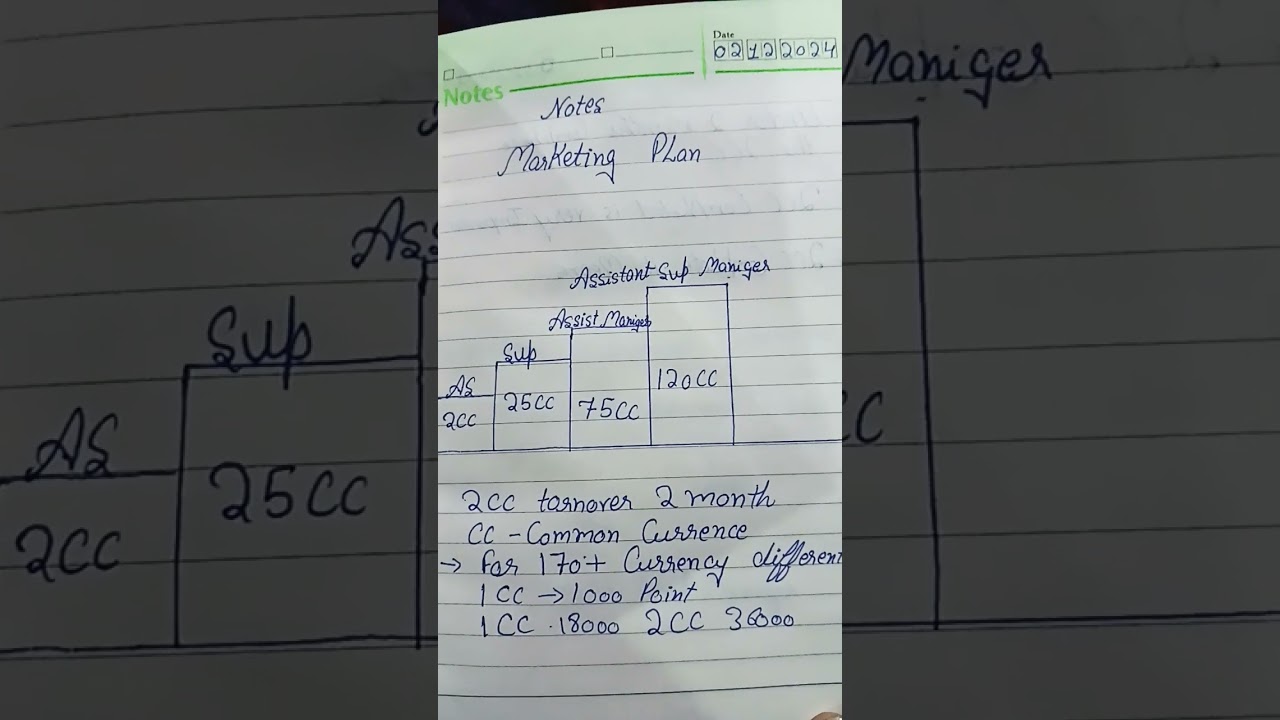 Date
02122024
Notes
Notes
Marketing PLan
Assistant Sup Maniger
Assist Maniger
Sup
AS
2CC
25CC
75CC
120CC
2CC tarnover 2 month
CC - Common Currence
→ For 170+ Currency different
1CC → 1000 Point
1CC .18000 2CC 36000
Maniger
Ass
Sup
AS
2CC
25CC
CC